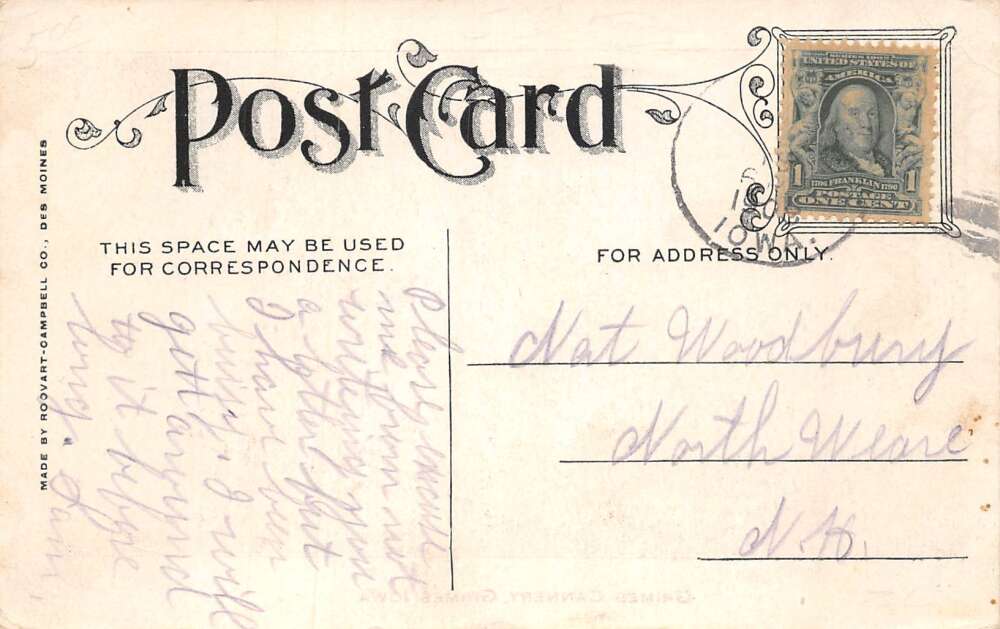 Post Card
UNITED STATES OF
AMERICA
1 1706 FRANKLIN 1790 1
POSTAGE
ONE CENT
IOWA.
THIS SPACE MAY BE USED
FOR CORRESPONDENCE.
FOR ADDRESS ONLY.
MADE BY ROOVART-CAMPBELL CO., DES MOINES
Please excuse
me from not
writing you
a letter but
I have been
busy. I will
gett around
to it before
long. Sam
Nat Woodbury
North Weare
N.H.
GRIMES CANNERY, GRIMES, IOWA